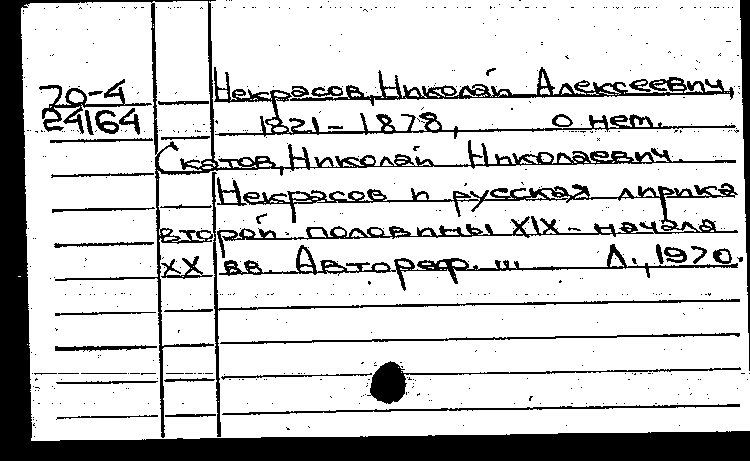 Некрасов, Николай Алексеевич,
70-4
24164
1821-1878, о нем.
Скатов, Николай Николаевич.
Некрасов и русская лирика
второй половины XIX - начала
XX вв. Автореф. ... Л., 1970.